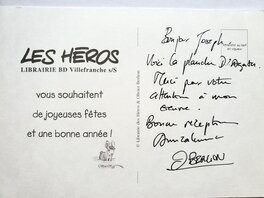 LES HÉROS
LIBRAIRIE BD Villefranche s/S
vous souhaitent
de joyeuses fêtes
et une bonne année !
© Librairie des Héros & Olivier Berlion
Bonjour Joseph
Voici la planche D'
Merci pour votre
attention à mon
œuvre.
Bonne réception
Amicalement
O BERLION